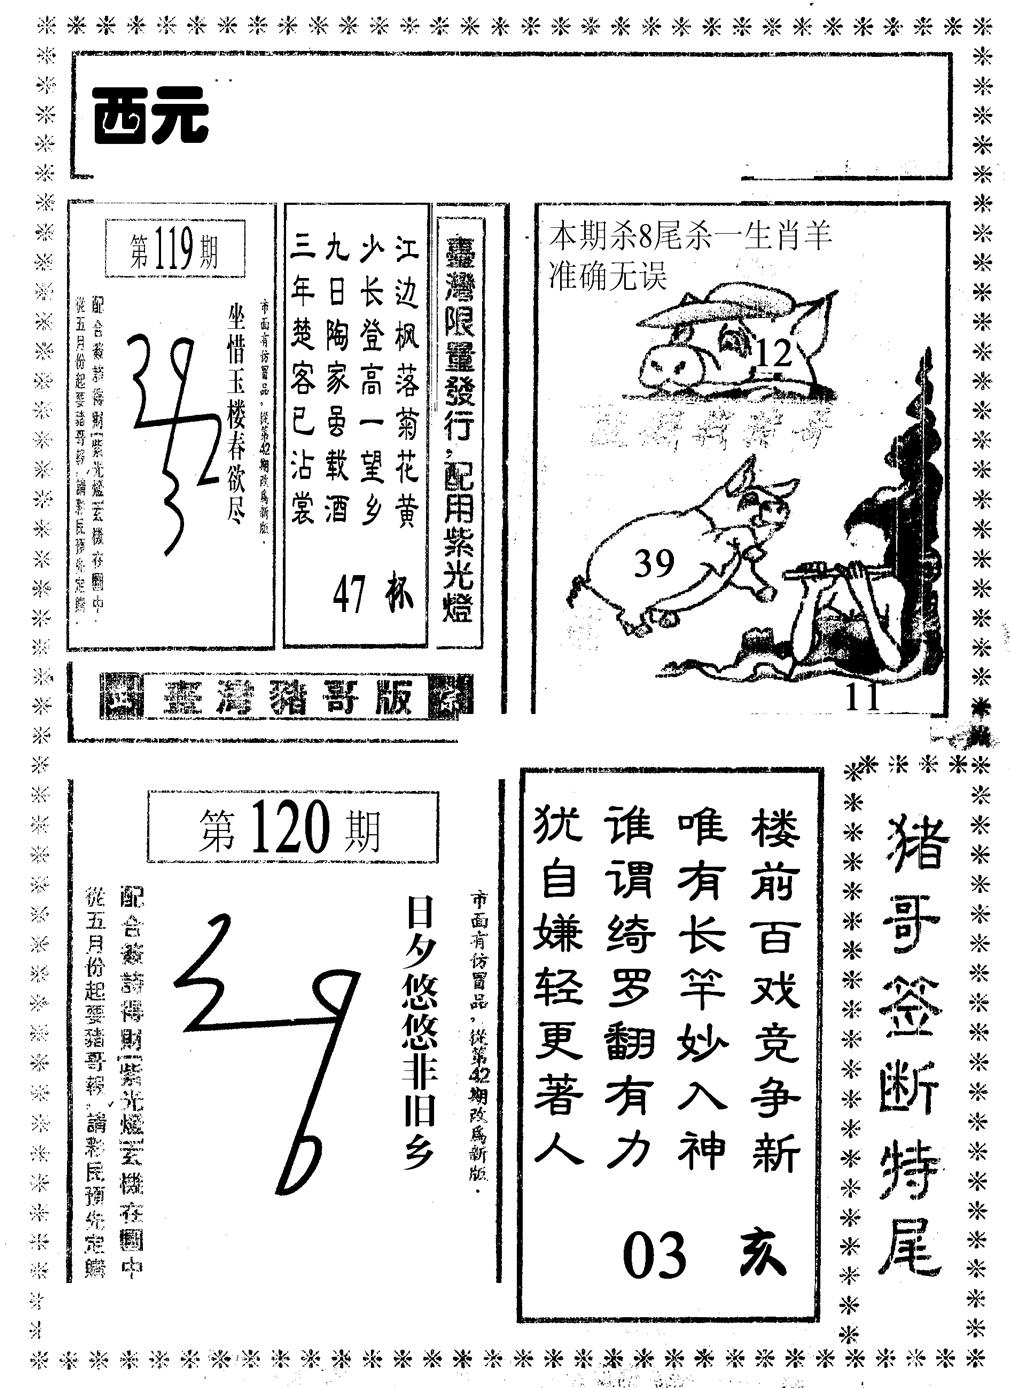 西元
第119期
坐惜玉楼春欲尽
市面有仿冒品，從第42期改爲新版．
配合簽詩得財 紫光燈 玄機在圖中．
從五月份起要豬哥報，請彩民預先定購．
江边枫落菊花黄
少长登高一望乡
九日陶家虽载酒
三年楚客已沾裳
47
臺灣限量發行，配用紫光燈
臺灣豬哥版
本期杀8尾杀一生肖羊
准确无误
12
39
11
第120期
日夕悠悠非旧乡
市面有仿冒品，從第42期改爲新版．
配合簽詩得財 紫光燈 玄機在圖中
從五月份起要豬哥報，請彩民預先定購
楼前百戏竞争新
唯有长竿妙入神
谁谓绮罗翻有力
犹自嫌轻更著人
03 亥
猪哥签断特尾